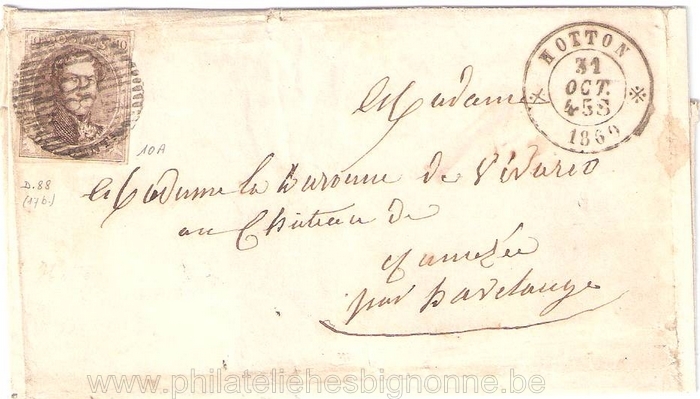 10 10
HOTTON
31
OCT.
4-5S
1860
A Madame
10A
D.88
(176.)
A Madame la Baronne de
au Château de
par Havelange
www.philateliehesbignonne.be